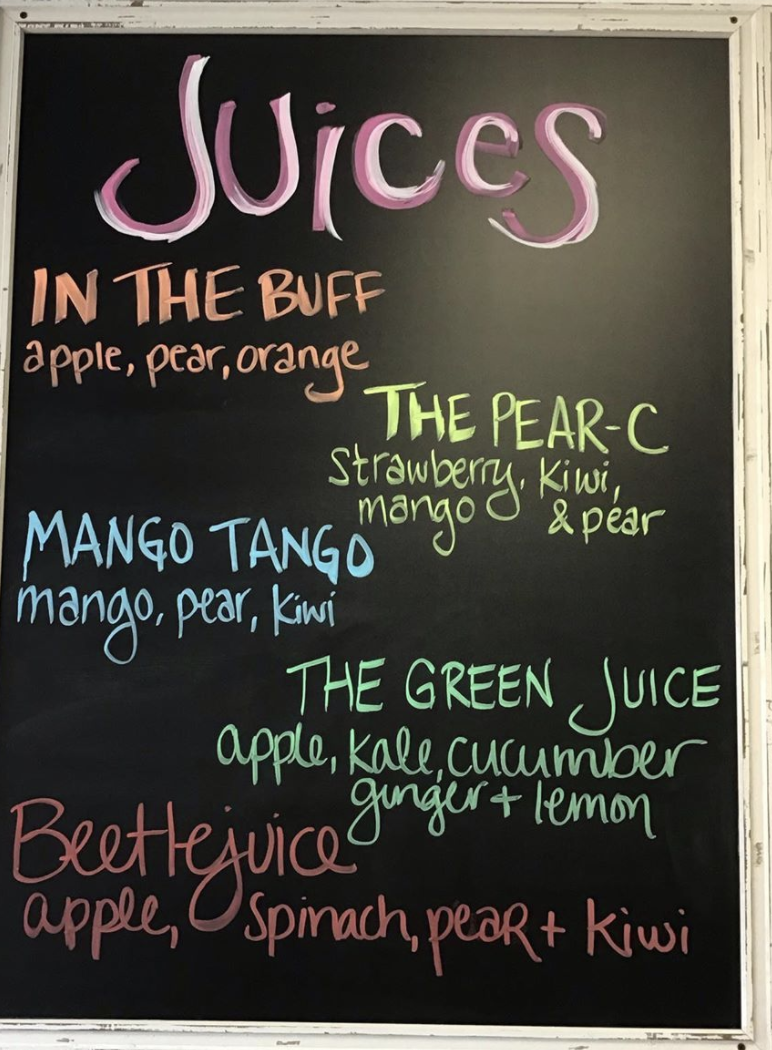 Juices
IN THE BUFF
apple, pear, orange
THE PEAR-C
Strawberry, Kiwi,
mango & pear
MANGO TANGO
mango, pear, Kiwi
THE GREEN JUICE
apple, Kale, cucumber
ginger + lemon
Beetlejuice
apple, Spinach, peaR + Kiwi